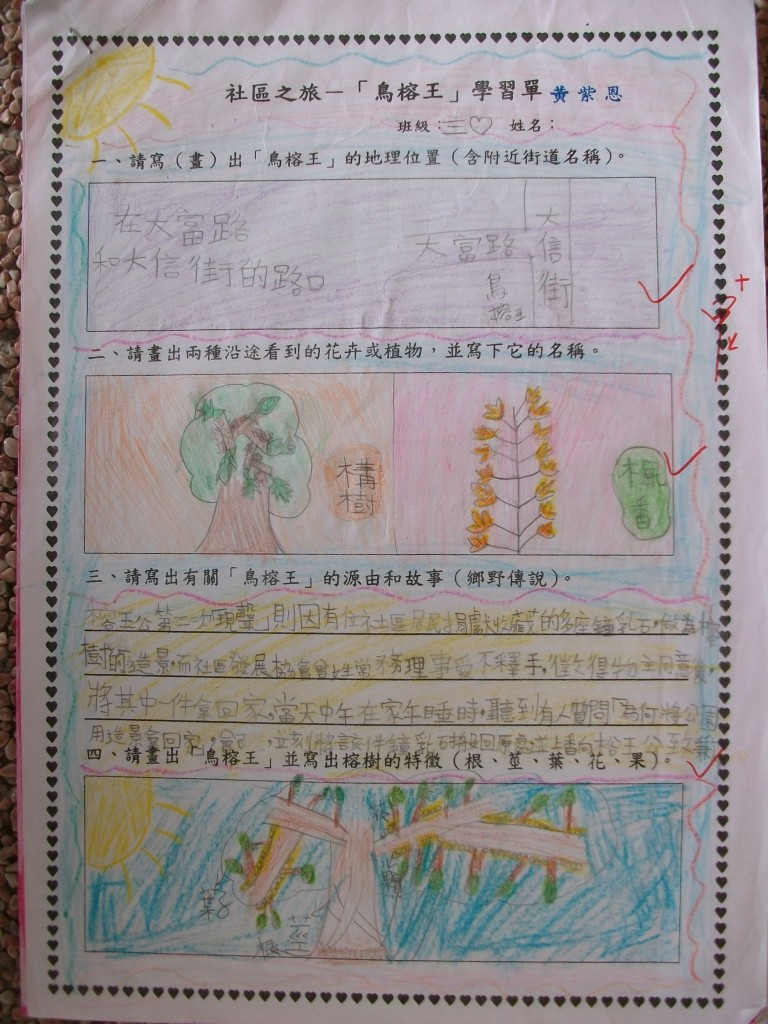 社區之旅－「鳥榕王」學習單 黃紫恩
班級：三♡ 姓名：
一、請寫（畫）出「鳥榕王」的地理位置（含附近街道名稱）。
在大富路
和大信街的路口
大富路
大信街
鳥榕王
二、請畫出兩種沿途看到的花卉或植物，並寫下它的名稱。
構樹
楓香
三、請寫出有關「鳥榕王」的源由和故事（鄉野傳說）。
榕王公第二次「現聲」則因有位社區居民捐獻收藏的多座鐘乳石，做為榕
樹的造景，而社區發展協會曾姓常務理事愛不釋手，徵得物主同意後，
將其中一件拿回家，當天中午在家午睡時，聽到有人質問「為何將公園
用造景拿回家，自己 並刻將該件鐘乳石搬回原處，並上香向榕王公致歉
四、請畫出「鳥榕王」並寫出榕樹的特徵（根、莖、葉、花、果）。
葉
莖
根